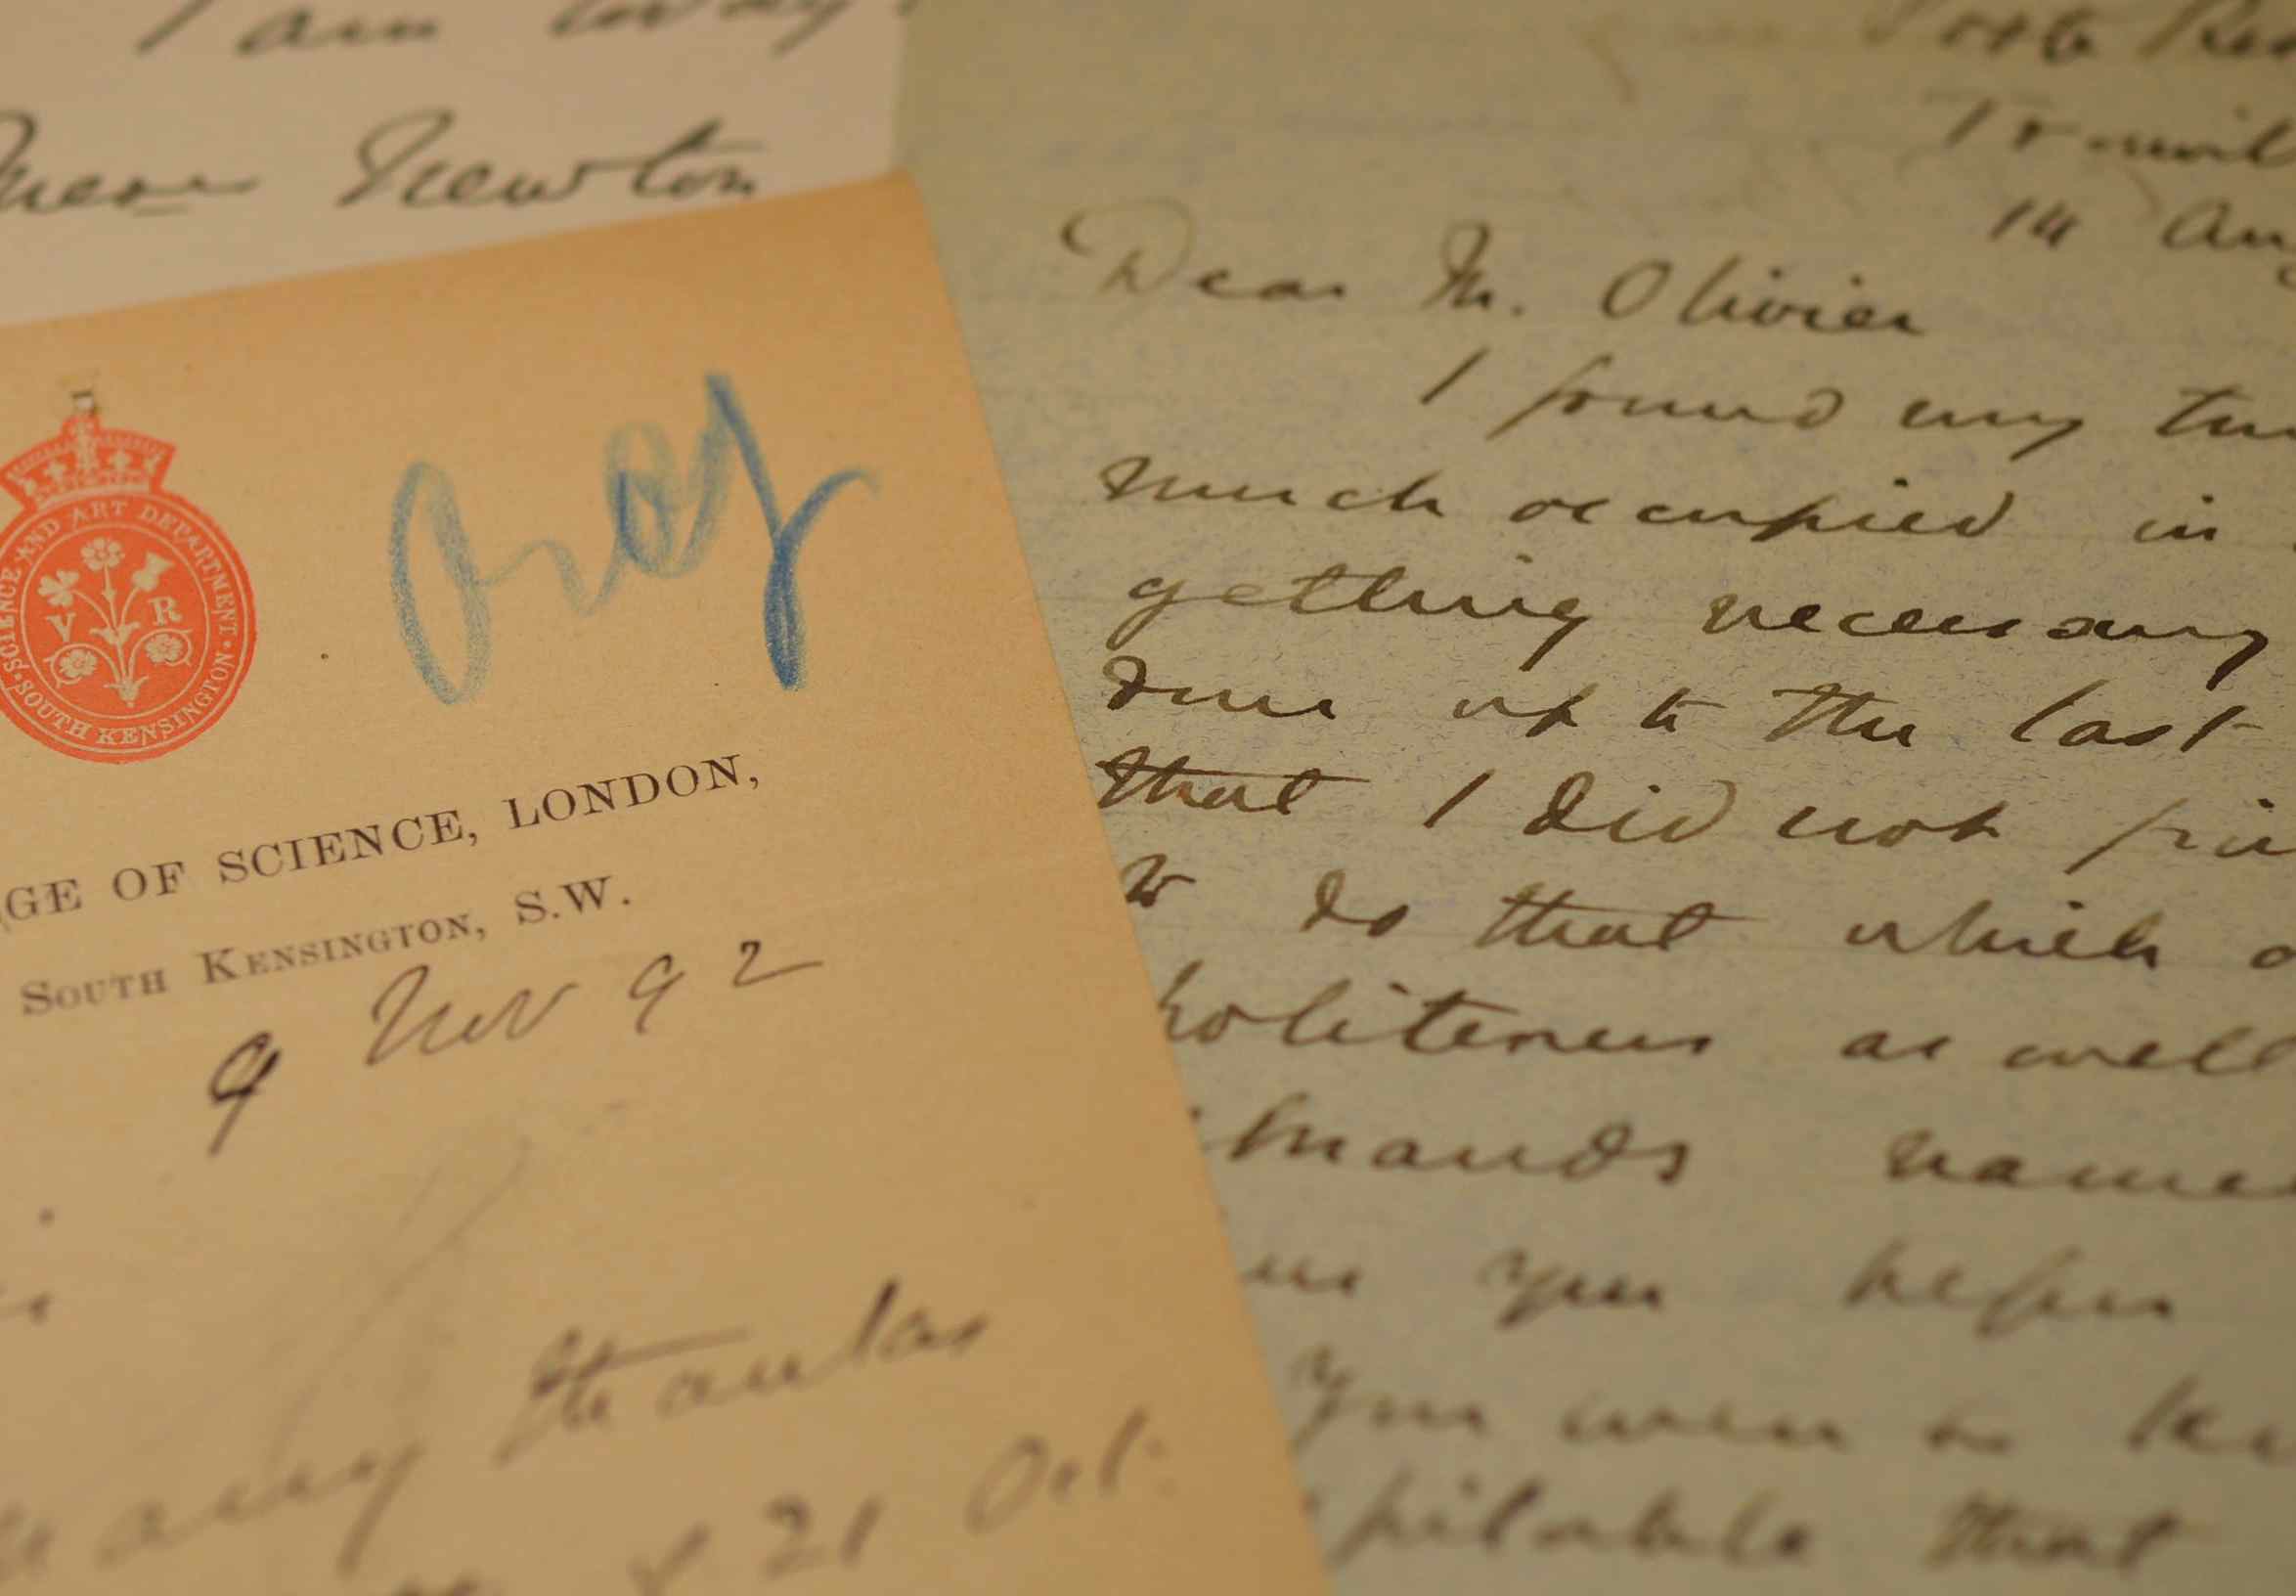 I am
Newton
SCIENCE AND ART DEPARTMENT
V R
SOUTH KENSINGTON
GE OF SCIENCE, LONDON,
SOUTH KENSINGTON, S.W.
9 Nov 92
many thanks
21 Oct.
14 Aug
Dear M. Olivier
I found my
much occupied in
getting necessary
done up to the last
that I did not
to do that which
politeness as well
mands
you before
You were so
pitable that